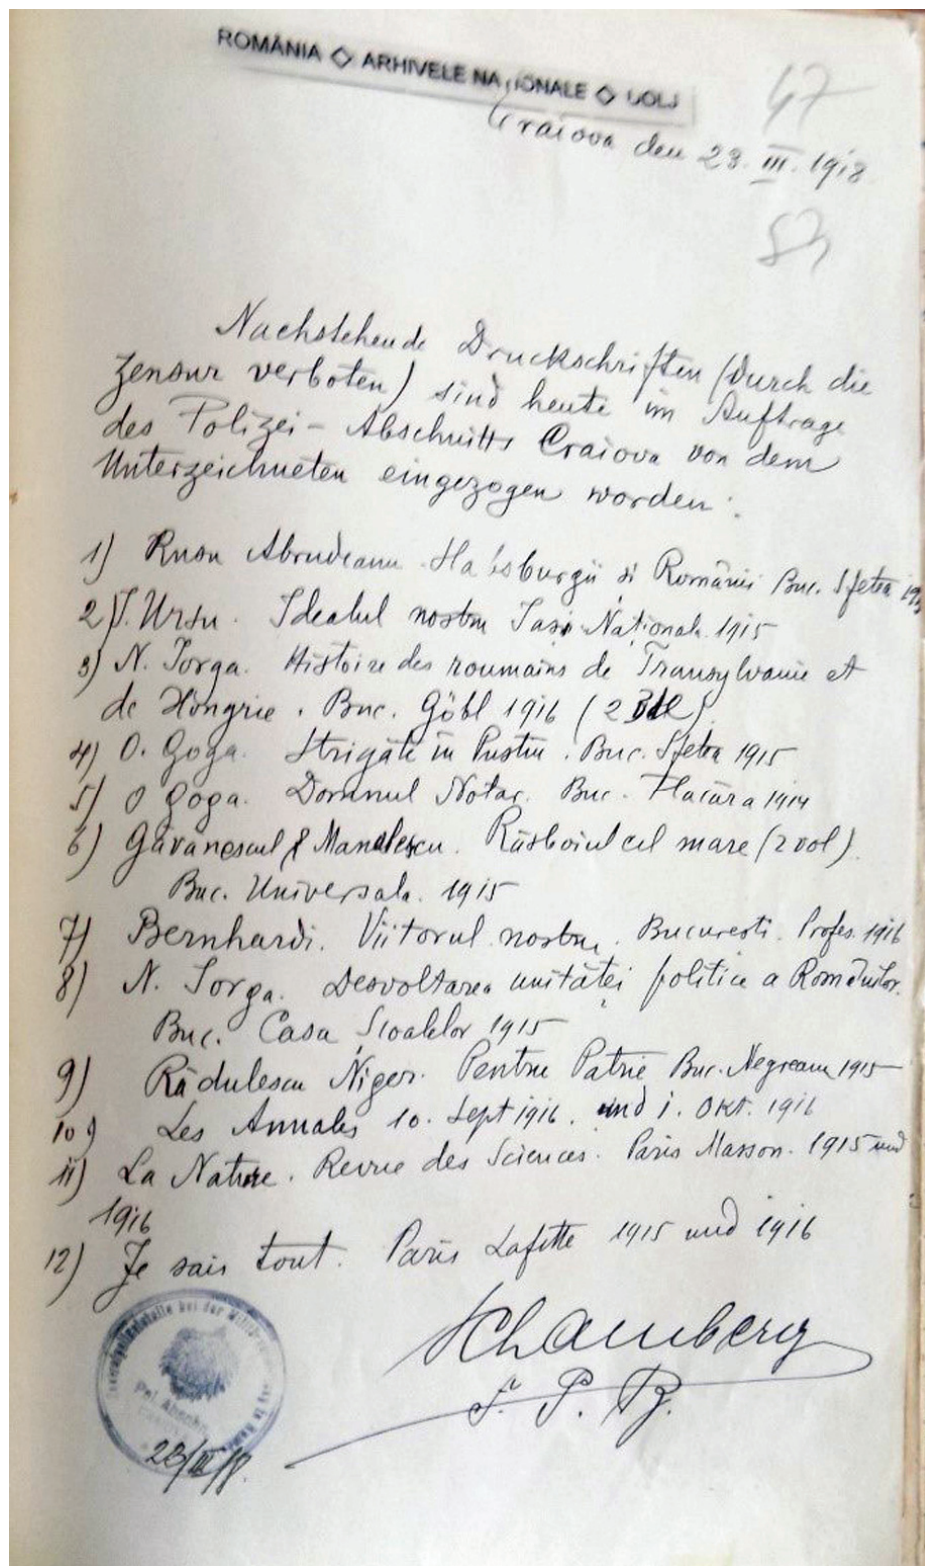 ROMÂNIA ◇ ARHIVELE NAȚIONALE ◇ DOLJ
47
Craiova den 23. III. 1918
53
Nachstehende Druckschriften (durch die
Zensur verboten) sind heute im Auftrage
des Polizei-Abschnitts Craiova von dem
Unterzeichneten eingezogen worden:
1) Rusu Abrudeanu. Habsburgii și Românii Buc. Sfetea
2) I. Ursu. Idealul nostru Iasi Naționala 1915
3) N. Jorga. Histoire des roumains de Transylvanie et
de Hongrie. Buc. Göbl 1916 (2 Bde)
4) O. Goga. Strigăte în Pustiu. Buc. Sfetea 1915
5) O Goga. Domnul Notar. Buc. Flacăra 1914
6) Găvănescul & Manolescu. Răsboiul cel mare (2 vol).
Buc. Universala. 1915
7) Bernhardi. Viitorul nostru. Bucuresti. Profes. 1916
8) N. Jorga. Desvoltarea unităței politice a Românilor.
Buc. Casa Școalelor 1915
9) Rădulescu Niger. Pentru Patrie Buc. Negreanu 1915
10) Les Annales 10. Sept 1916. und 1. Okt. 1916
11) La Nature. Revue des Sciences. Paris Masson. 1915 und
1916
12) Je sais tout. Paris Lafitte 1915 und 1916
Schamberg
F. P. Bz.
bei der Militär
Pol. Abschn.
23/III/18.